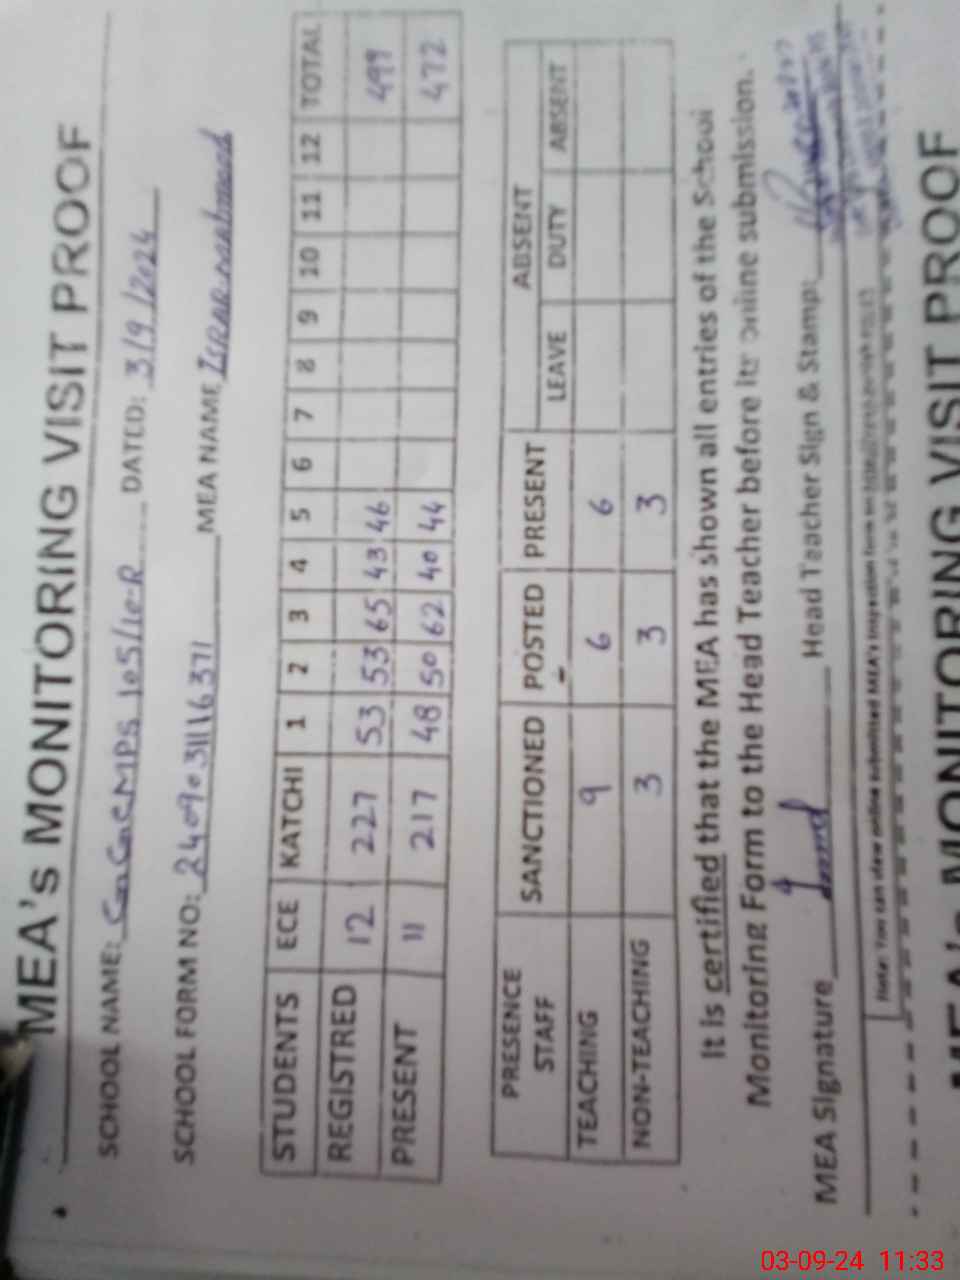 MEA's MONITORING VISIT PROOF
SCHOOL NAME: GGCMPS 105/10-R DATED: 3/9/2024
SCHOOL FORM NO: 2409031116371 MEA NAME
STUDENTS ECE KATCHI 1 2 3 4 5 6 7 8 9 10 11 12 TOTAL
REGISTRED 12 227 53 53 65 43 46 499
PRESENT 11 217 48 50 62 40 44 472
PRESENCE STAFF SANCTIONED POSTED PRESENT ABSENT
LEAVE DUTY ABSENT
TEACHING 9 6 6
NON-TEACHING 3 3 3
It Is certified that the MEA has shown all entries of the School
Monitoring Form to the Head Teacher before its online submission.
MEA Signature Head Teacher Sign & Stamp:
Note: You can view online submitted MEA's Inspection form on
MEA's MONITORING VISIT PROOF
03-09-24 11:33